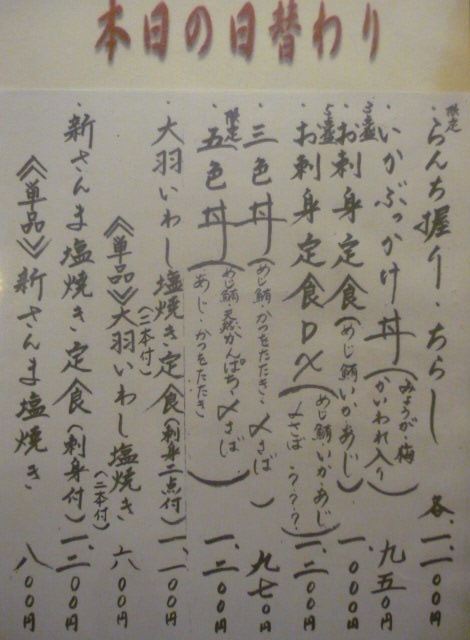 本日の日替わり
限定
・らんち握り・ちらし 各、一、一〇〇円
・いかぶっかけ丼(みょうが・梅 かいわれ入り) 九五〇円
3盛
・お刺身定食(めじ鮪いかあじ) 一、〇〇〇円
5盛
お刺身定食DX(めじ鮪いか・あじ 〆さば う???) 一、二〇〇円
・三色丼(めじ鮪・かつをたたき・〆さば) 九七〇円
限定
・五色丼(めじ鮪天然かんぱち、〆さば あじ・かつをたたき) 一、二〇〇円
・大羽いわし塩焼き定食(刺身二点付) 一、一〇〇円
(二本付)
《単品》大羽いわし塩焼き 六〇〇円
(二本付)
・新さんま塩焼き定食(刺身付) 一、二〇〇円
《単品》新さんま塩焼き 八〇〇円